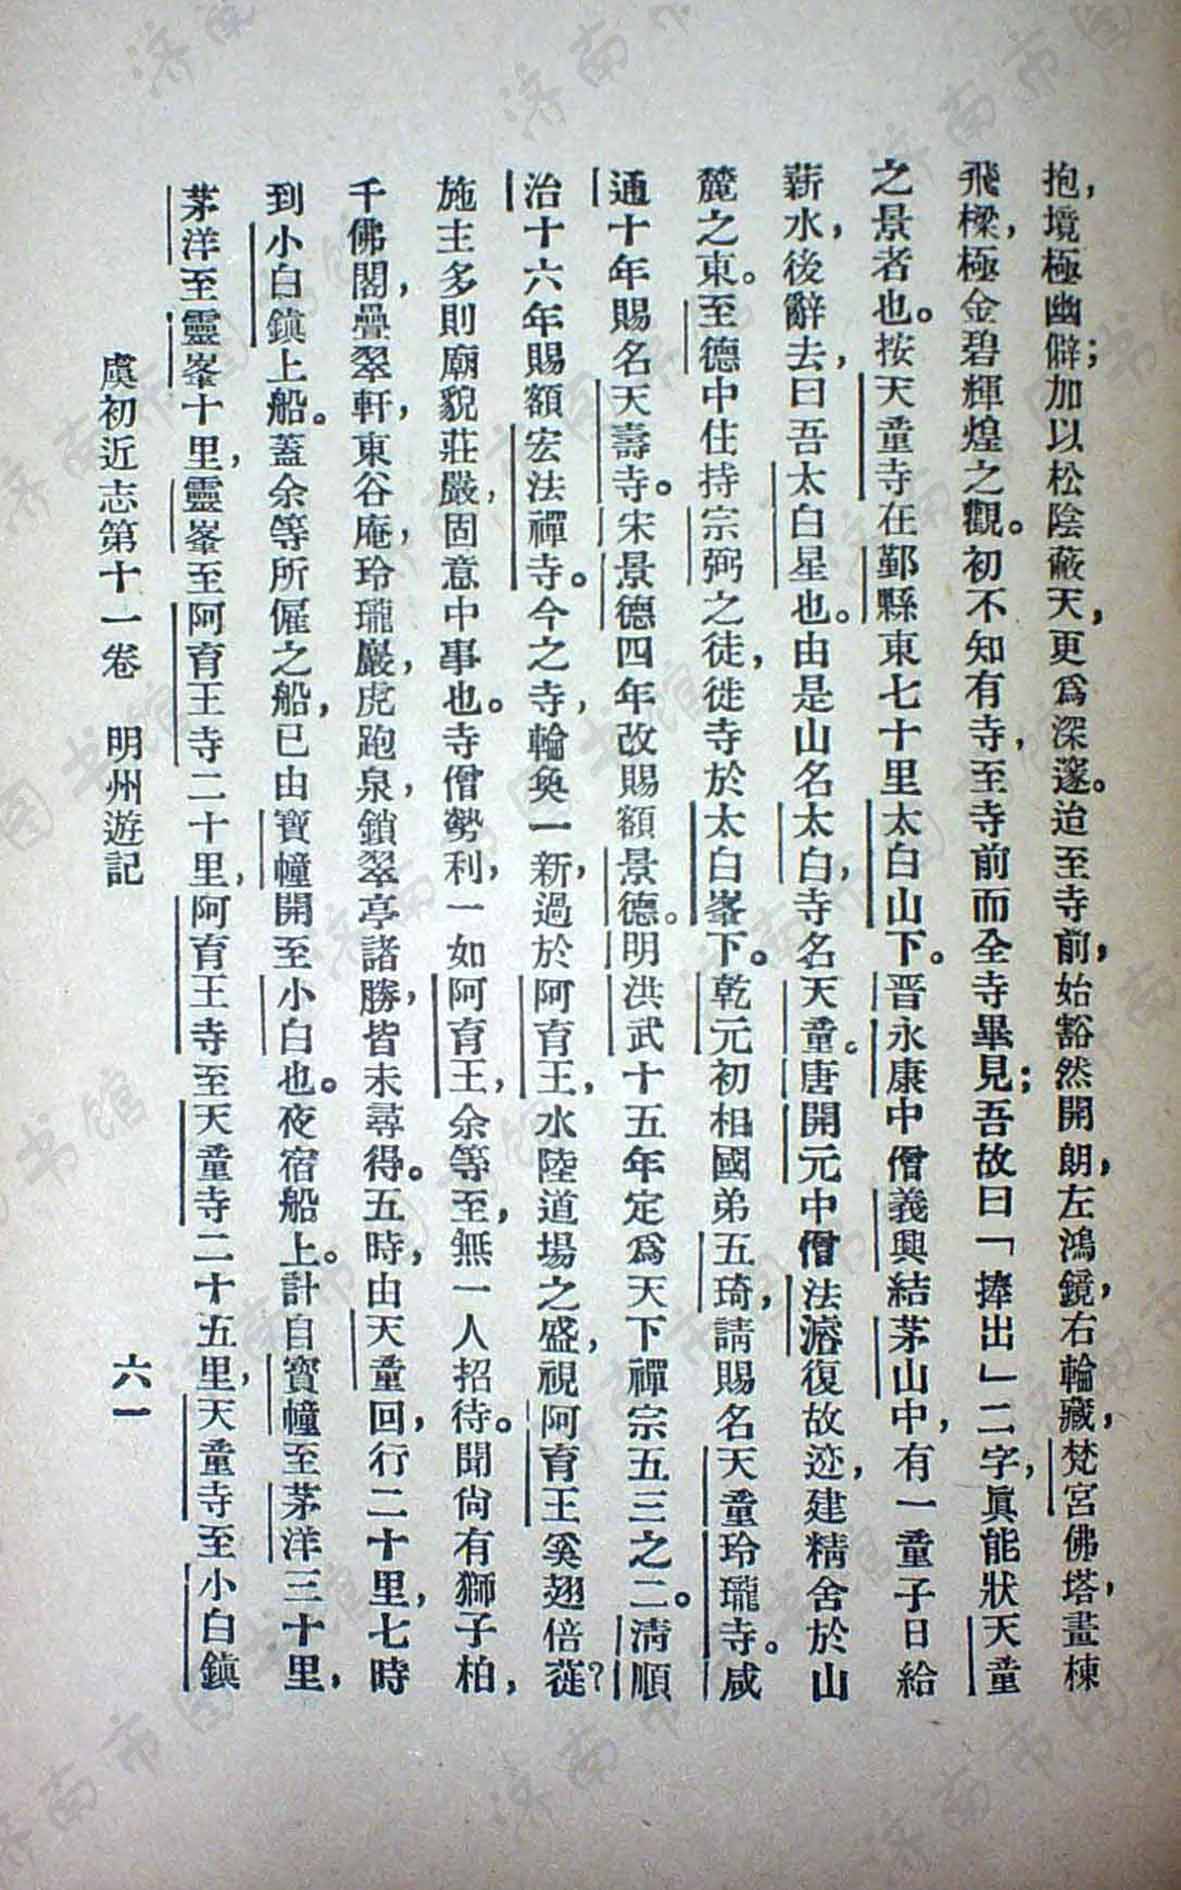 抱，境極幽僻；加以松陰蔽天，更爲深邃。迨至寺前，始豁然開朗，左鴻鏡，右輪藏，梵宮佛塔，畫棟
飛樑，極金碧輝煌之觀。初不知有寺，至寺前而全寺畢見；吾故曰「捧出」二字，眞能狀天童
之景者也。按天童寺在鄞縣東七十里太白山下。晋永康中僧義興結茅山中，有一童子日給
薪水，後辭去，曰吾太白星也。由是山名太白，寺名天童。唐開元中僧法濬復故迹，建精舍於山
麓之東。至德中住持宗弼之徒，徙寺於太白峯下。乾元初相國弟五琦，請賜名天童玲瓏寺。咸
通十年賜名天壽寺。宋景德四年改賜額景德。明洪武十五年定爲天下禪宗五三之二。清順
治十六年賜額宏法禪寺。今之寺，輪奐一新，過於阿育王，水陸道場之盛，視阿育王奚翅倍蓰？
施主多則廟貌莊嚴，固意中事也。寺僧勢利，一如阿育王，余等至，無一人招待。聞尙有獅子柏，
千佛閣，疊翠軒，東谷庵，玲瓏巖，虎跑泉，鎖翠亭諸勝，皆未尋得。五時，由天童回，行二十里，七時
到小白鎭上船。蓋余等所僱之船，已由寶幢開至小白也。夜宿船上。計自寶幢至茅洋三十里，
茅洋至靈峯十里，靈峯至阿育王寺二十里，阿育王寺至天童寺二十五里，天童寺至小白鎭
虞初近志第十一卷　明州遊記　六一
濟南市图书馆